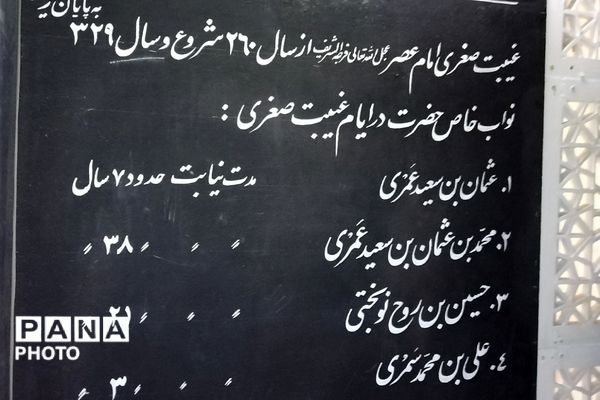 به پایان ر
غیبت صغری امام عصر عجل الله تعالی فرجه الشریف از سال ۲۶۰ شروع و سال ۳۲۹
نواب خاص حضرت در ایام غیبت صغری :
۱. عثمان بن سعید عَمری مدت نیابت حدود ۷ سال
۲. محمد بن عثمان بن سعید عَمری 〃 〃 〃 ۳۸ 〃
۳. حسین بن روح نوبختی 〃 〃 〃 ۲۱
۴. علی بن محمد سَمری 〃 〃 〃 ۳ 〃
PANA
PHOTO